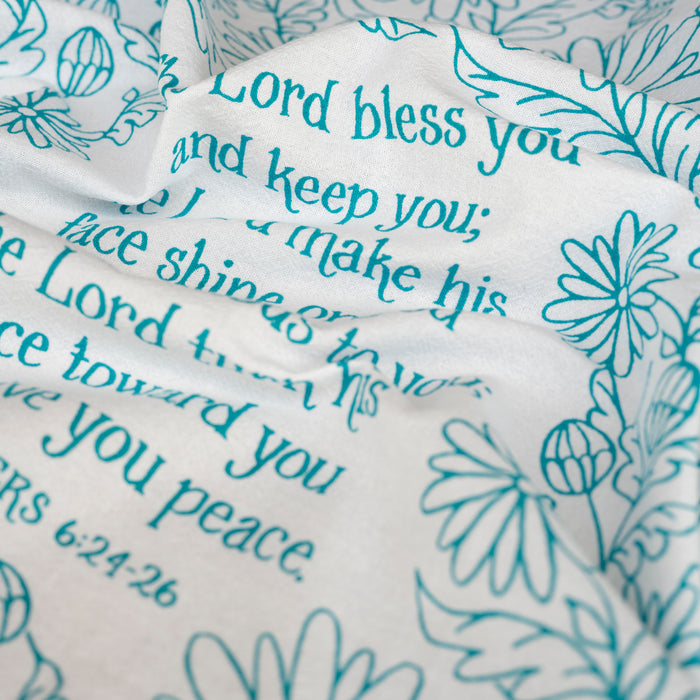 Lord bless you
and keep you;
make his
face shine
Lord turn his
toward you
you peace.
6:24-26